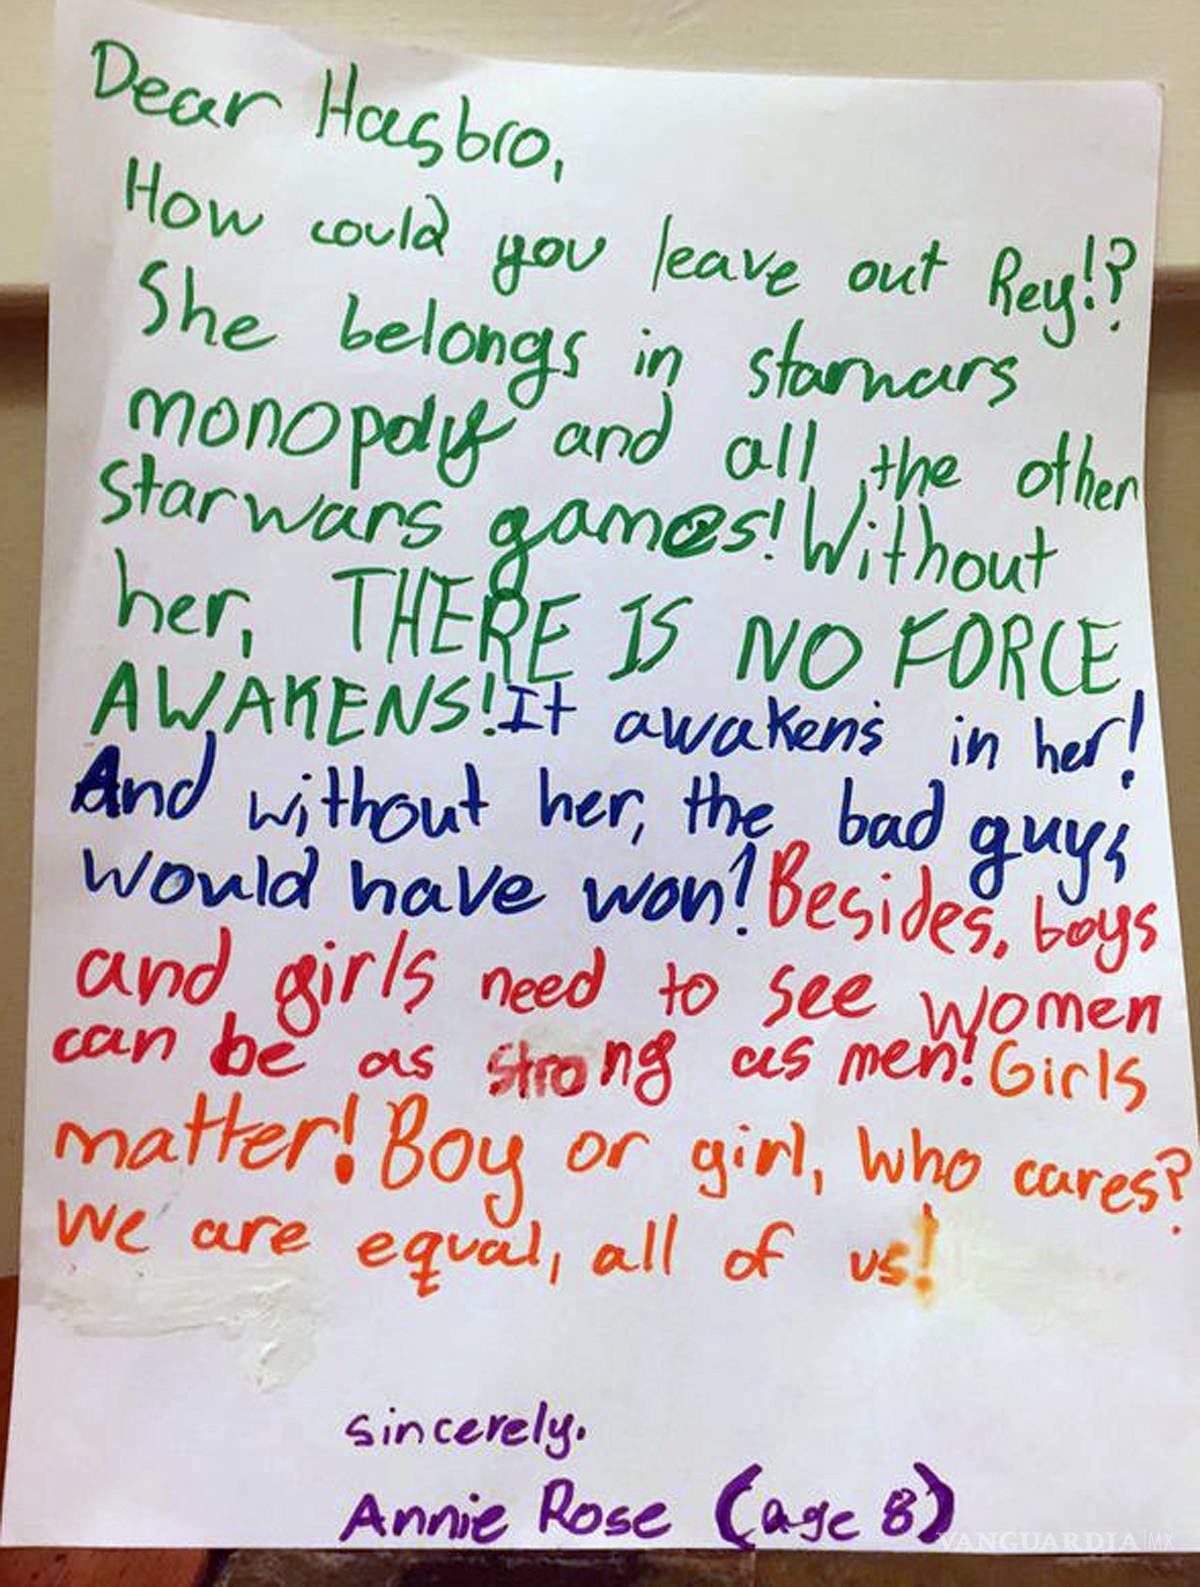 Dear Hasbro,
How could you leave out Rey!?
She belongs in starwars
monopoly and all the other
starwars games! Without
her, THERE IS NO FORCE
AWAKENS! It awakens in her!
And without her, the bad guys
would have won! Besides, boys
and girls need to see women
can be as strong as men! Girls
matter! Boy or girl, who cares?
We are equal, all of us!
sincerely.
Annie Rose (age 8)
VANGUARDIA|MX